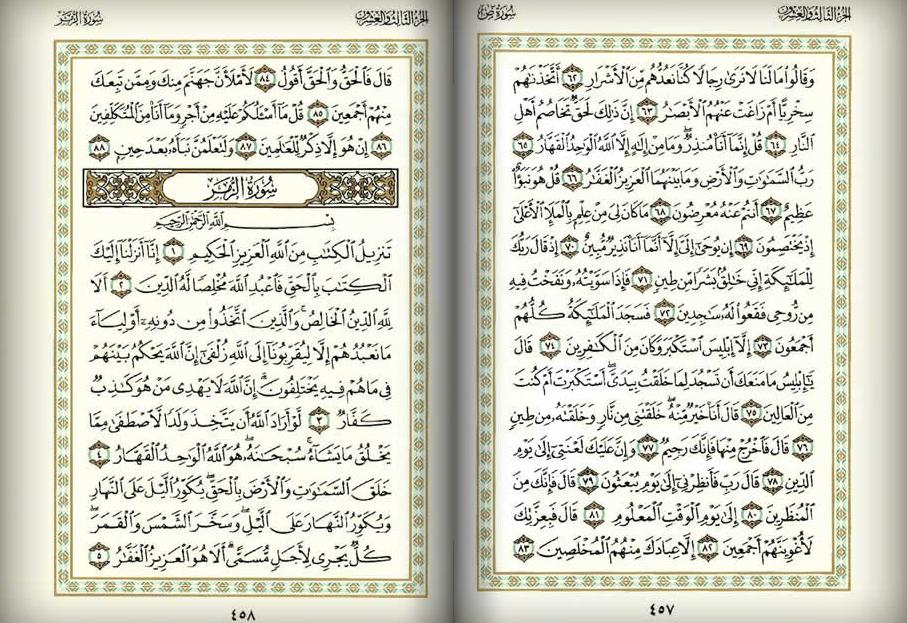 الجزء الثالث والعشرون
سورة ص
وَقَالُوا۟ مَا لَنَا لَا نَرَىٰ رِجَالًا كُنَّا نَعُدُّهُم مِّنَ ٱلْأَشْرَارِ ٦٢ أَتَّخَذْنَٰهُمْ
سِخْرِيًّا أَمْ زَاغَتْ عَنْهُمُ ٱلْأَبْصَٰرُ ٦٣ إِنَّ ذَٰلِكَ لَحَقٌّ تَخَاصُمُ أَهْلِ
ٱلنَّارِ ٦٤ قُلْ إِنَّمَآ أَنَا۠ مُنذِرٌ وَمَا مِنْ إِلَٰهٍ إِلَّا ٱللَّهُ ٱلْوَٰحِدُ ٱلْقَهَّارُ ٦٥
رَبُّ ٱلسَّمَٰوَٰتِ وَٱلْأَرْضِ وَمَا بَيْنَهُمَا ٱلْعَزِيزُ ٱلْغَفَّٰرُ ٦٦ قُلْ هُوَ نَبَؤٌا۟
عَظِيمٌ ٦٧ أَنتُمْ عَنْهُ مُعْرِضُونَ ٦٨ مَا كَانَ لِىَ مِنْ عِلْمٍۭ بِٱلْمَلَإِ ٱلْأَعْلَىٰٓ
إِذْ يَخْتَصِمُونَ ٦٩ إِن يُوحَىٰٓ إِلَىَّ إِلَّآ أَنَّمَآ أَنَا۠ نَذِيرٌ مُّبِينٌ ٧٠ إِذْ قَالَ رَبُّكَ
لِلْمَلَٰٓئِكَةِ إِنِّى خَٰلِقٌۢ بَشَرًا مِّن طِينٍ ٧١ فَإِذَا سَوَّيْتُهُۥ وَنَفَخْتُ فِيهِ
مِن رُّوحِى فَقَعُوا۟ لَهُۥ سَٰجِدِينَ ٧٢ فَسَجَدَ ٱلْمَلَٰٓئِكَةُ كُلُّهُمْ
أَجْمَعُونَ ٧٣ إِلَّآ إِبْلِيسَ ٱسْتَكْبَرَ وَكَانَ مِنَ ٱلْكَٰفِرِينَ ٧٤ قَالَ
يَٰٓإِبْلِيسُ مَا مَنَعَكَ أَن تَسْجُدَ لِمَا خَلَقْتُ بِيَدَىَّ أَسْتَكْبَرْتَ أَمْ كُنتَ
مِنَ ٱلْعَالِينَ ٧٥ قَالَ أَنَا۠ خَيْرٌ مِّنْهُ خَلَقْتَنِى مِن نَّارٍ وَخَلَقْتَهُۥ مِن طِينٍ
٧٦ قَالَ فَٱخْرُجْ مِنْهَا فَإِنَّكَ رَجِيمٌ ٧٧ وَإِنَّ عَلَيْكَ لَعْنَتِىٓ إِلَىٰ يَوْمِ
ٱلدِّينِ ٧٨ قَالَ رَبِّ فَأَنظِرْنِىٓ إِلَىٰ يَوْمِ يُبْعَثُونَ ٧٩ قَالَ فَإِنَّكَ مِنَ
ٱلْمُنظَرِينَ ٨٠ إِلَىٰ يَوْمِ ٱلْوَقْتِ ٱلْمَعْلُومِ ٨١ قَالَ فَبِعِزَّتِكَ
لَأُغْوِيَنَّهُمْ أَجْمَعِينَ ٨٢ إِلَّا عِبَادَكَ مِنْهُمُ ٱلْمُخْلَصِينَ ٨٣
٤٥٧
الجزء الثالث والعشرون
سورة الزمر
قَالَ فَٱلْحَقُّ وَٱلْحَقَّ أَقُولُ ٨٤ لَأَمْلَأَنَّ جَهَنَّمَ مِنكَ وَمِمَّن تَبِعَكَ
مِنْهُمْ أَجْمَعِينَ ٨٥ قُلْ مَآ أَسْـَٔلُكُمْ عَلَيْهِ مِنْ أَجْرٍ وَمَآ أَنَا۠ مِنَ ٱلْمُتَكَلِّفِينَ
٨٦ إِنْ هُوَ إِلَّا ذِكْرٌ لِّلْعَٰلَمِينَ ٨٧ وَلَتَعْلَمُنَّ نَبَأَهُۥ بَعْدَ حِينٍۭ ٨٨
سورة الزمر
بِسْمِ ٱللَّهِ ٱلرَّحْمَٰنِ ٱلرَّحِيمِ
تَنزِيلُ ٱلْكِتَٰبِ مِنَ ٱللَّهِ ٱلْعَزِيزِ ٱلْحَكِيمِ ١ إِنَّآ أَنزَلْنَآ إِلَيْكَ
ٱلْكِتَٰبَ بِٱلْحَقِّ فَٱعْبُدِ ٱللَّهَ مُخْلِصًا لَّهُ ٱلدِّينَ ٢ أَلَا
لِلَّهِ ٱلدِّينُ ٱلْخَالِصُ وَٱلَّذِينَ ٱتَّخَذُوا۟ مِن دُونِهِۦٓ أَوْلِيَآءَ
مَا نَعْبُدُهُمْ إِلَّا لِيُقَرِّبُونَآ إِلَى ٱللَّهِ زُلْفَىٰٓ إِنَّ ٱللَّهَ يَحْكُمُ بَيْنَهُمْ
فِى مَا هُمْ فِيهِ يَخْتَلِفُونَ إِنَّ ٱللَّهَ لَا يَهْدِى مَنْ هُوَ كَٰذِبٌ
كَفَّارٌ ٣ لَّوْ أَرَادَ ٱللَّهُ أَن يَتَّخِذَ وَلَدًا لَّٱصْطَفَىٰ مِمَّا
يَخْلُقُ مَا يَشَآءُ سُبْحَٰنَهُۥ هُوَ ٱللَّهُ ٱلْوَٰحِدُ ٱلْقَهَّارُ ٤
خَلَقَ ٱلسَّمَٰوَٰتِ وَٱلْأَرْضَ بِٱلْحَقِّ يُكَوِّرُ ٱلَّيْلَ عَلَى ٱلنَّهَارِ
وَيُكَوِّرُ ٱلنَّهَارَ عَلَى ٱلَّيْلِ وَسَخَّرَ ٱلشَّمْسَ وَٱلْقَمَرَ
كُلٌّ يَجْرِى لِأَجَلٍ مُّسَمًّى أَلَا هُوَ ٱلْعَزِيزُ ٱلْغَفَّٰرُ ٥
٤٥٨